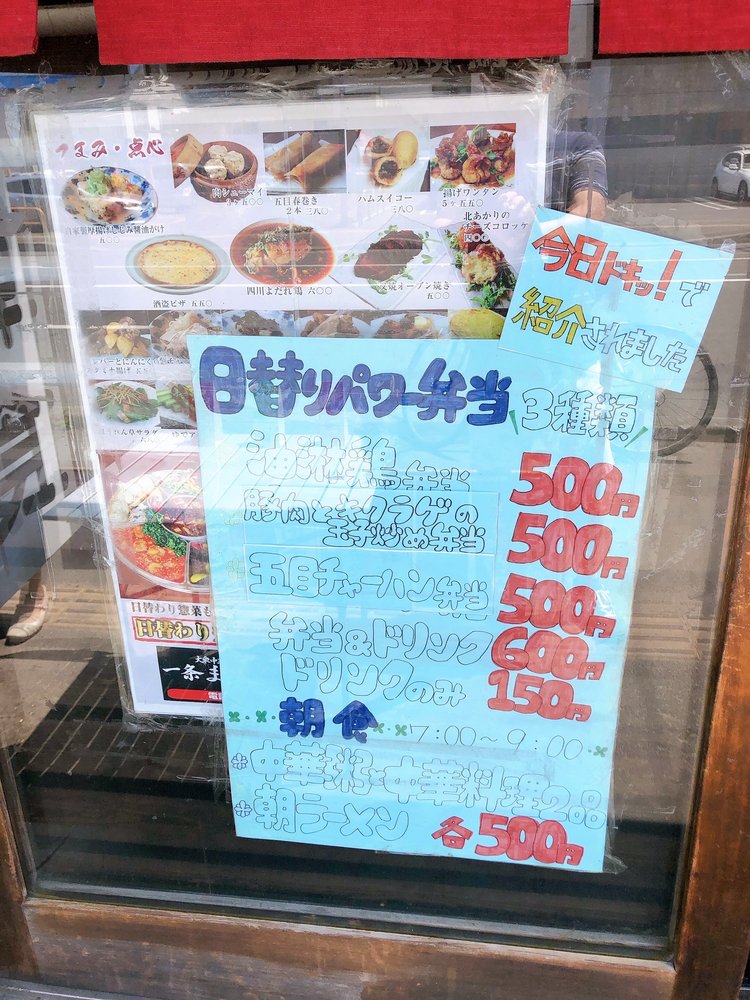 つまみ・点心
肉シューマイ
5ヶ五〇〇
五目春巻き
2本 三八〇
ハムスイコー
三八〇
揚げワンタン
5ヶ五五〇
五〇〇
酒盗ピザ 五五〇
四川よだれ鶏 六〇〇
オーブン焼き
五〇〇
北あかりの
チーズコロッケ
四〇〇
今日ドキッ!で
紹介されました
日替りパワー弁当 3種類
油淋鶏弁当 500円
豚肉とキクラゲの
玉子炒め弁当 500円
五目チャーハン弁当 500円
弁当&ドリンク 600円
ドリンクのみ 150円
朝食 7:00~9:00
中華粥と中華料理2品
朝ラーメン 各500円
日替わり惣菜も
日替わり
一条